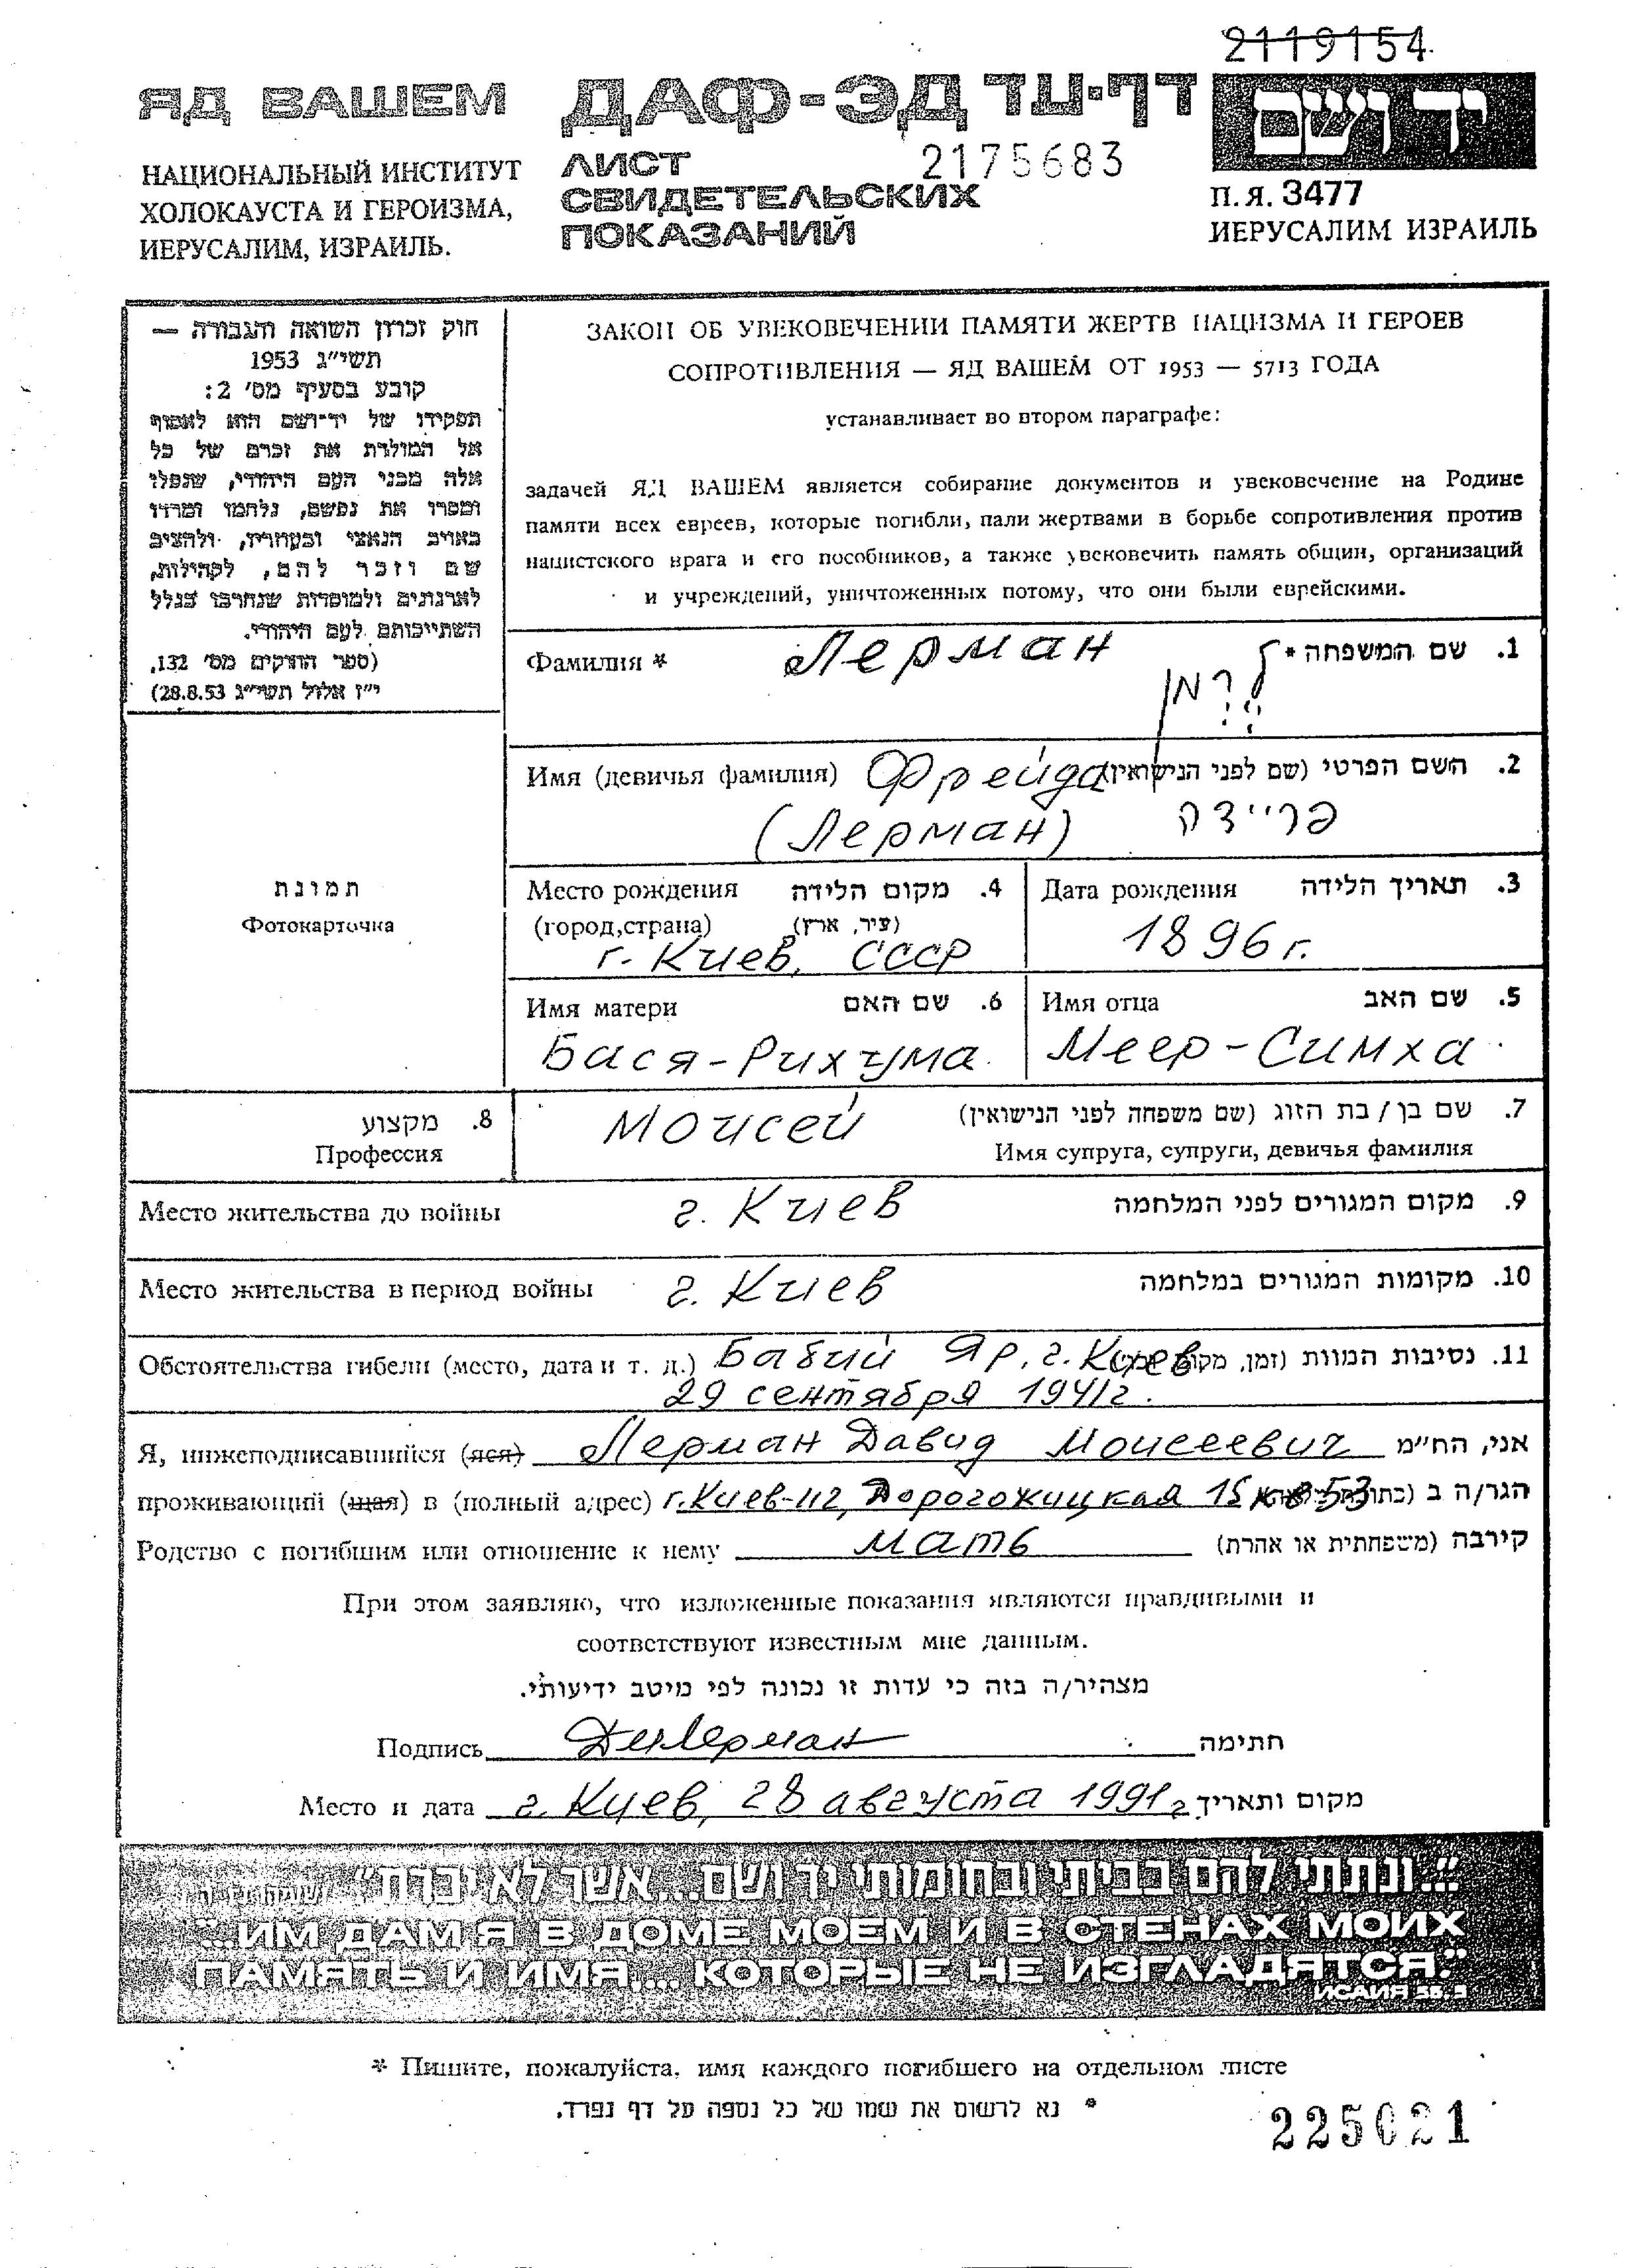 2119154
ЯД ВАШЕМ
НАЦИОНАЛЬНЫЙ ИНСТИТУТ
ХОЛОКАУСТА И ГЕРОИЗМА,
ИЕРУСАЛИМ, ИЗРАИЛЬ.
ДАФ-ЭД דף-עד
2175683
ЛИСТ
СВИДЕТЕЛЬСКИХ
ПОКАЗАНИЙ
יד ושם
П.Я. 3477
ИЕРУСАЛИМ ИЗРАИЛЬ
חוק זכרון השואה והגבורה —
תשי״ג 1953
קובע בסעיף מס׳ 2:
תפקידו של יד-ושם הוא לאסוף
אל המולדת את זכרם של כל
אלה מבני העם היהודי, שנפלו
ומסרו את נפשם, נלחמו ומרדו
באויב הנאצי ובעוזריו, ולהציב
שם וזכר להם, לקהילות,
לארגונים ולמוסדות שנחרבו בגלל
השתייכותם לעם היהודי.
(ספר החוקים מס׳ 132,
י״ז אלול תשי״ג 28.8.53)
ЗАКОН ОБ УВЕКОВЕЧЕНИИ ПАМЯТИ ЖЕРТВ НАЦИЗМА И ГЕРОЕВ
СОПРОТИВЛЕНИЯ — ЯД ВАШЕМ ОТ 1953 — 5713 ГОДА
устанавливает во втором параграфе:
задачей ЯД ВАШЕМ является собирание документов и увековечение на Родине
памяти всех евреев, которые погибли, пали жертвами в борьбе сопротивления против
нацистского врага и его пособников, а также увековечить память общин, организаций
и учреждений, уничтоженных потому, что они были еврейскими.
Фамилия * Лерман 1. שם המשפחה *
לרמן
Имя (девичья фамилия) Фрейда 2. השם הפרטי (שם לפני הנישואין)
(Лерман) פריידה
תמונה
Фотокарточка
Место рождения 4. מקום הלידה
(город,страна) (עיר, ארץ)
г. Киев, СССР
Дата рождения 3. תאריך הלידה
1896 г.
Имя матери 6. שם האם
Бася-Рихума
Имя отца 5. שם האב
Меер-Симха
8. מקצוע
Профессия
Моисей 7. שם בן / בת הזוג (שם משפחה לפני הנישואין)
Имя супруга, супруги, девичья фамилия
Место жительства до войны г. Киев 9. מקום המגורים לפני המלחמה
Место жительства в период войны г. Киев 10. מקומות המגורים במלחמה
Обстоятельства гибели (место, дата и т. д.) Бабий Яр, г. Киев 11. נסיבות המוות (זמן, מקום
29 сентября 1941г.
Я, нижеподписавшийся (яся) Лерман Давид Моисеевич אני, הח״מ
проживающий (щая) в (полный адрес) г.Киев-112, Дорогожицкая 15 кв 53 הגר/ה ב
Родство с погибшим или отношение к нему мать קירבה (משפחתית או אחרת)
При этом заявляю, что изложенные показания являются правдивыми и
соответствуют известным мне данным.
מצהיר/ה בזה כי עדות זו נכונה לפי מיטב ידיעותי.
Подпись ДМЛерман חתימה
Место и дата г. Киев, 28 августа 1991г מקום ותאריך
״...ונתתי להם בביתי ובחומותי יד ושם...אשר לא יכרת״
"...ИМ ДАМ Я В ДОМЕ МОЕМ И В СТЕНАХ МОИХ
ПАМЯТЬ И ИМЯ,... КОТОРЫЕ НЕ ИЗГЛАДЯТСЯ."
ИСАИЯ 56.5
* Пишите, пожалуйста, имя каждого погибшего на отдельном листе
* נא לרשום את שמו של כל נספה על דף נפרד.
225021